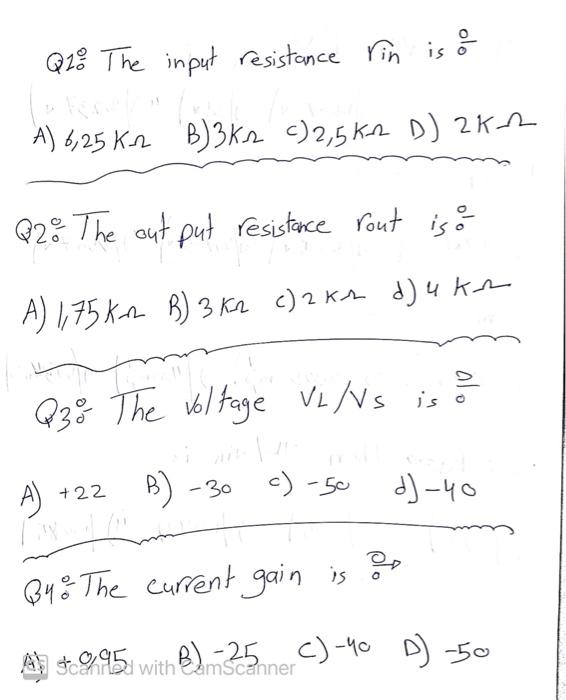 Q1: The input resistance rin is :-
A) 6,25 KΩ B) 3KΩ C) 2,5 KΩ D) 2KΩ
Q2:- The out put resistance rout is :-
A) 1,75 KΩ B) 3 KΩ C) 2 KΩ d) 4 KΩ
Q3:- The voltage VL/Vs is :-
A) +22 B) -30 C) -50 d) -40
Q4: The current gain is :-
A) + 0,95 B) -25 C) -40 D) -50
Scanned with CamScanner